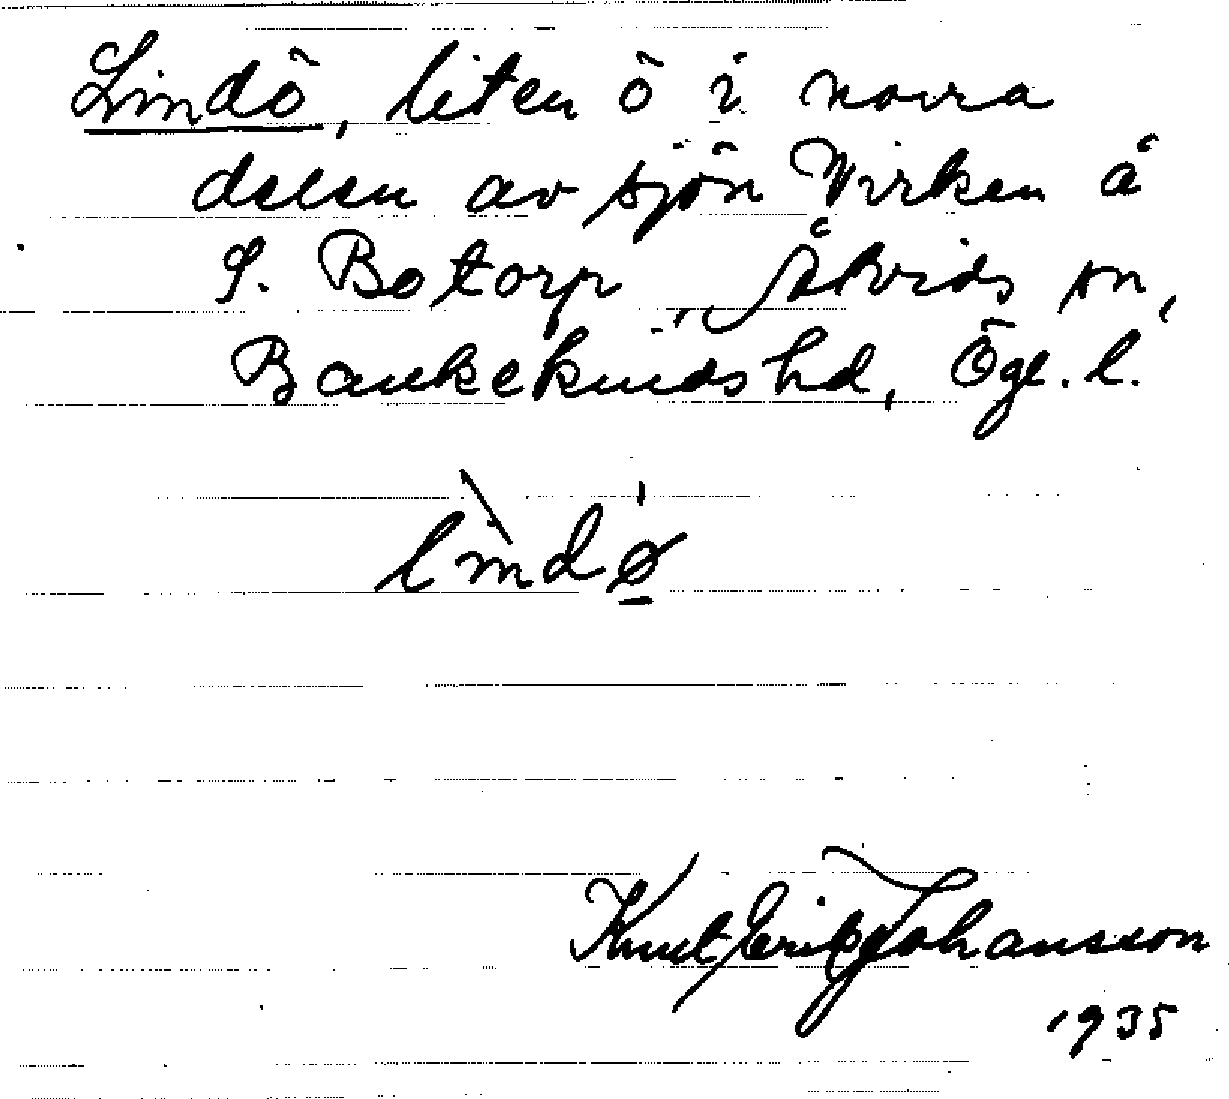 Lindö, liten ö i norra
delen av sjön Virken å
S. Botorp, Åtvids sn,
Bankekinds hd, Ögl. l.
l̀indø̲
Knut Erik Johansson
1935